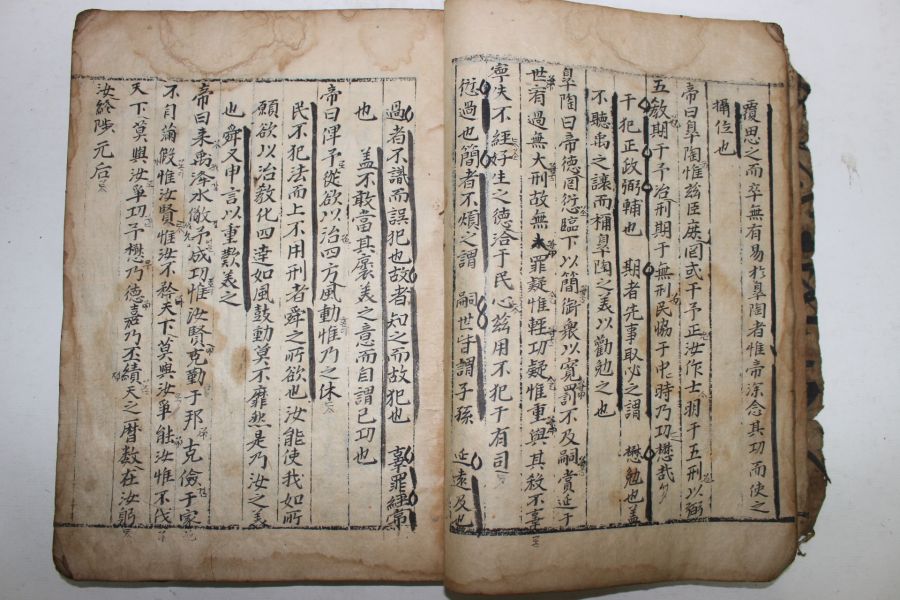 覆思之而卒無有易於皐陶者惟帝深念其功而使之
攝位也
帝曰皐陶惟玆臣庶罔或干予正汝作士明于五刑以弼
五敎期于予治刑期于無刑民協于中時乃功懋哉
干犯正政弼輔也 期者先事取必之謂 懋勉也盖
不聽禹之讓而稱皐陶之美以勸勉之也
皐陶曰帝德罔愆臨下以簡御衆以寬罰不及嗣賞延于
世宥過無大刑故無小罪疑惟輕功疑惟重與其殺不辜
寧失不經好生之德洽于民心玆用不犯于有司
愆過也簡者不煩之謂 嗣世皆謂子孫 延遠及也
過者不識而誤犯也故者知之而故犯也 辜罪經常
也 盖不敢當其褒美之意而自謂己功也
帝曰俾予從欲以治四方風動惟乃之休
民不犯法而上不用刑者舜之所欲也汝能使我如所
願欲以治敎化四達如風鼓動莫不靡然是乃汝之美
也舜又申言以重歎美之
帝曰来禹洚水儆予成功惟汝賢克勤于邦克儉于家
不自滿假惟汝賢惟汝不矜天下莫與汝爭能汝惟不伐
天下莫與汝爭功予懋乃德嘉乃丕績天之曆数在汝躬
汝終陟元后